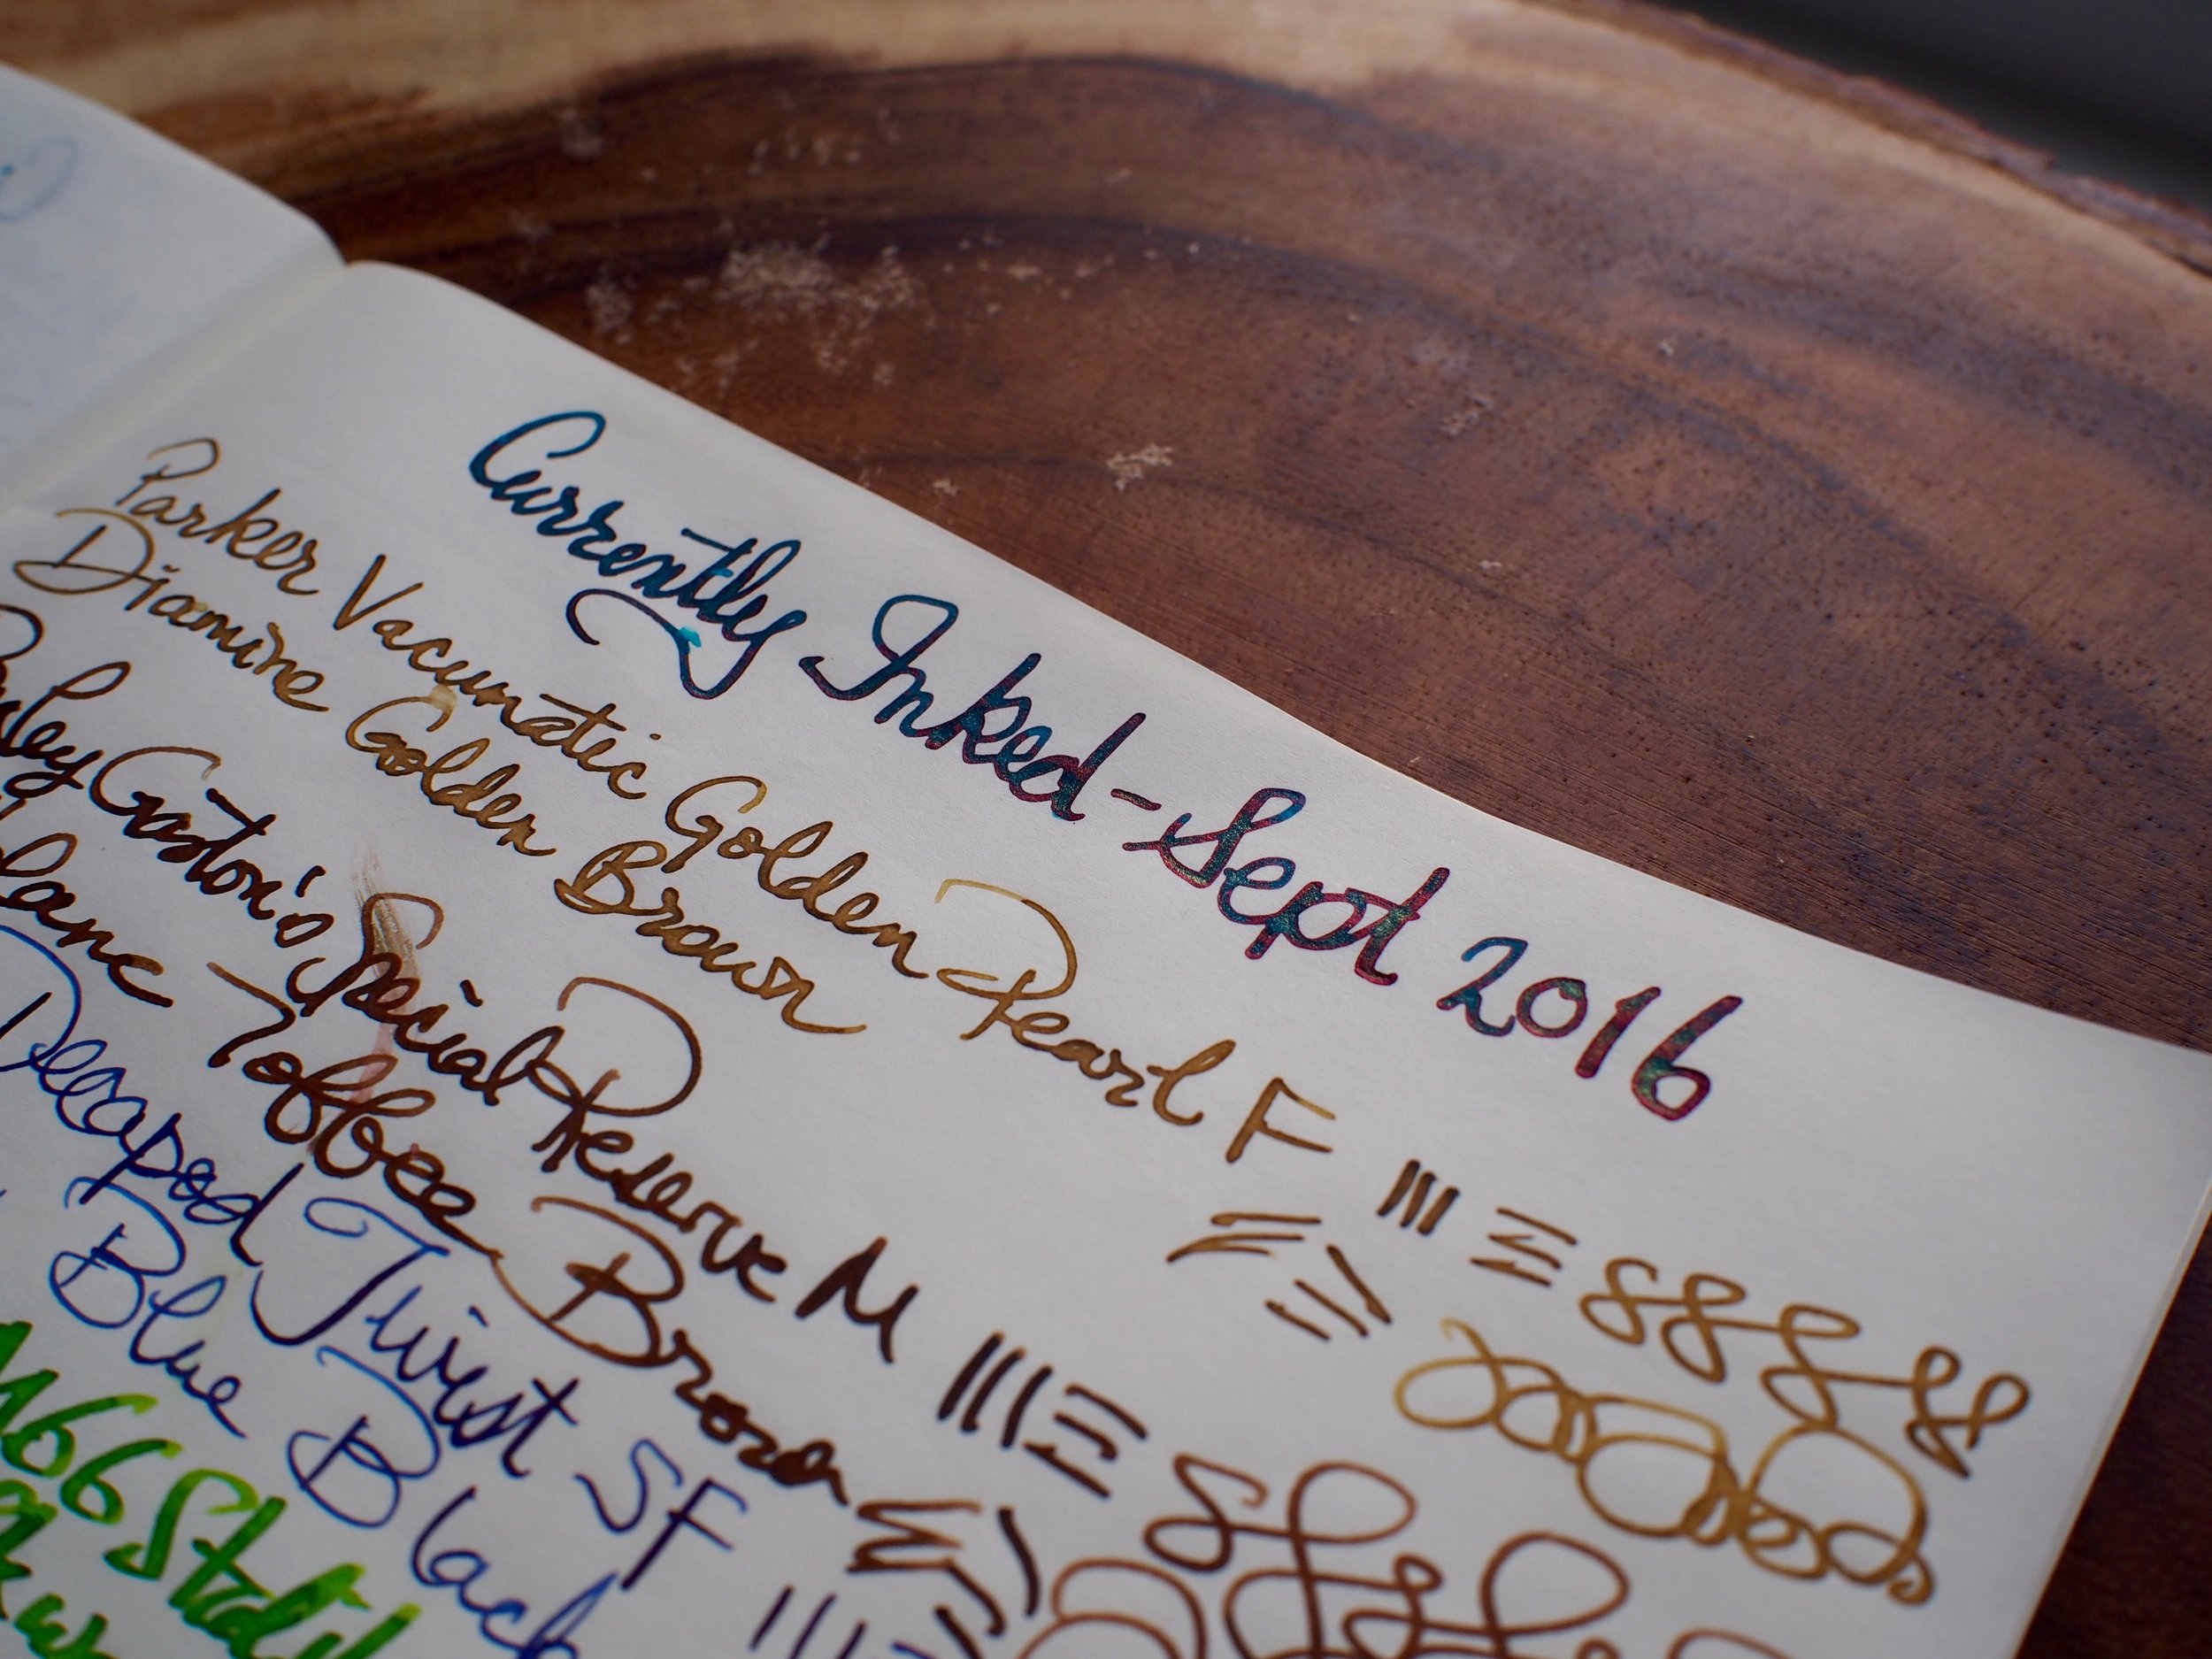 Currently Inked - Sept 2016
Parker Vacumatic Golden Pearl F
Diamine Golden Brown
Gaston's Special Reserve M
Toffee Brown
Decapod Twist SF
Blue Black
M66